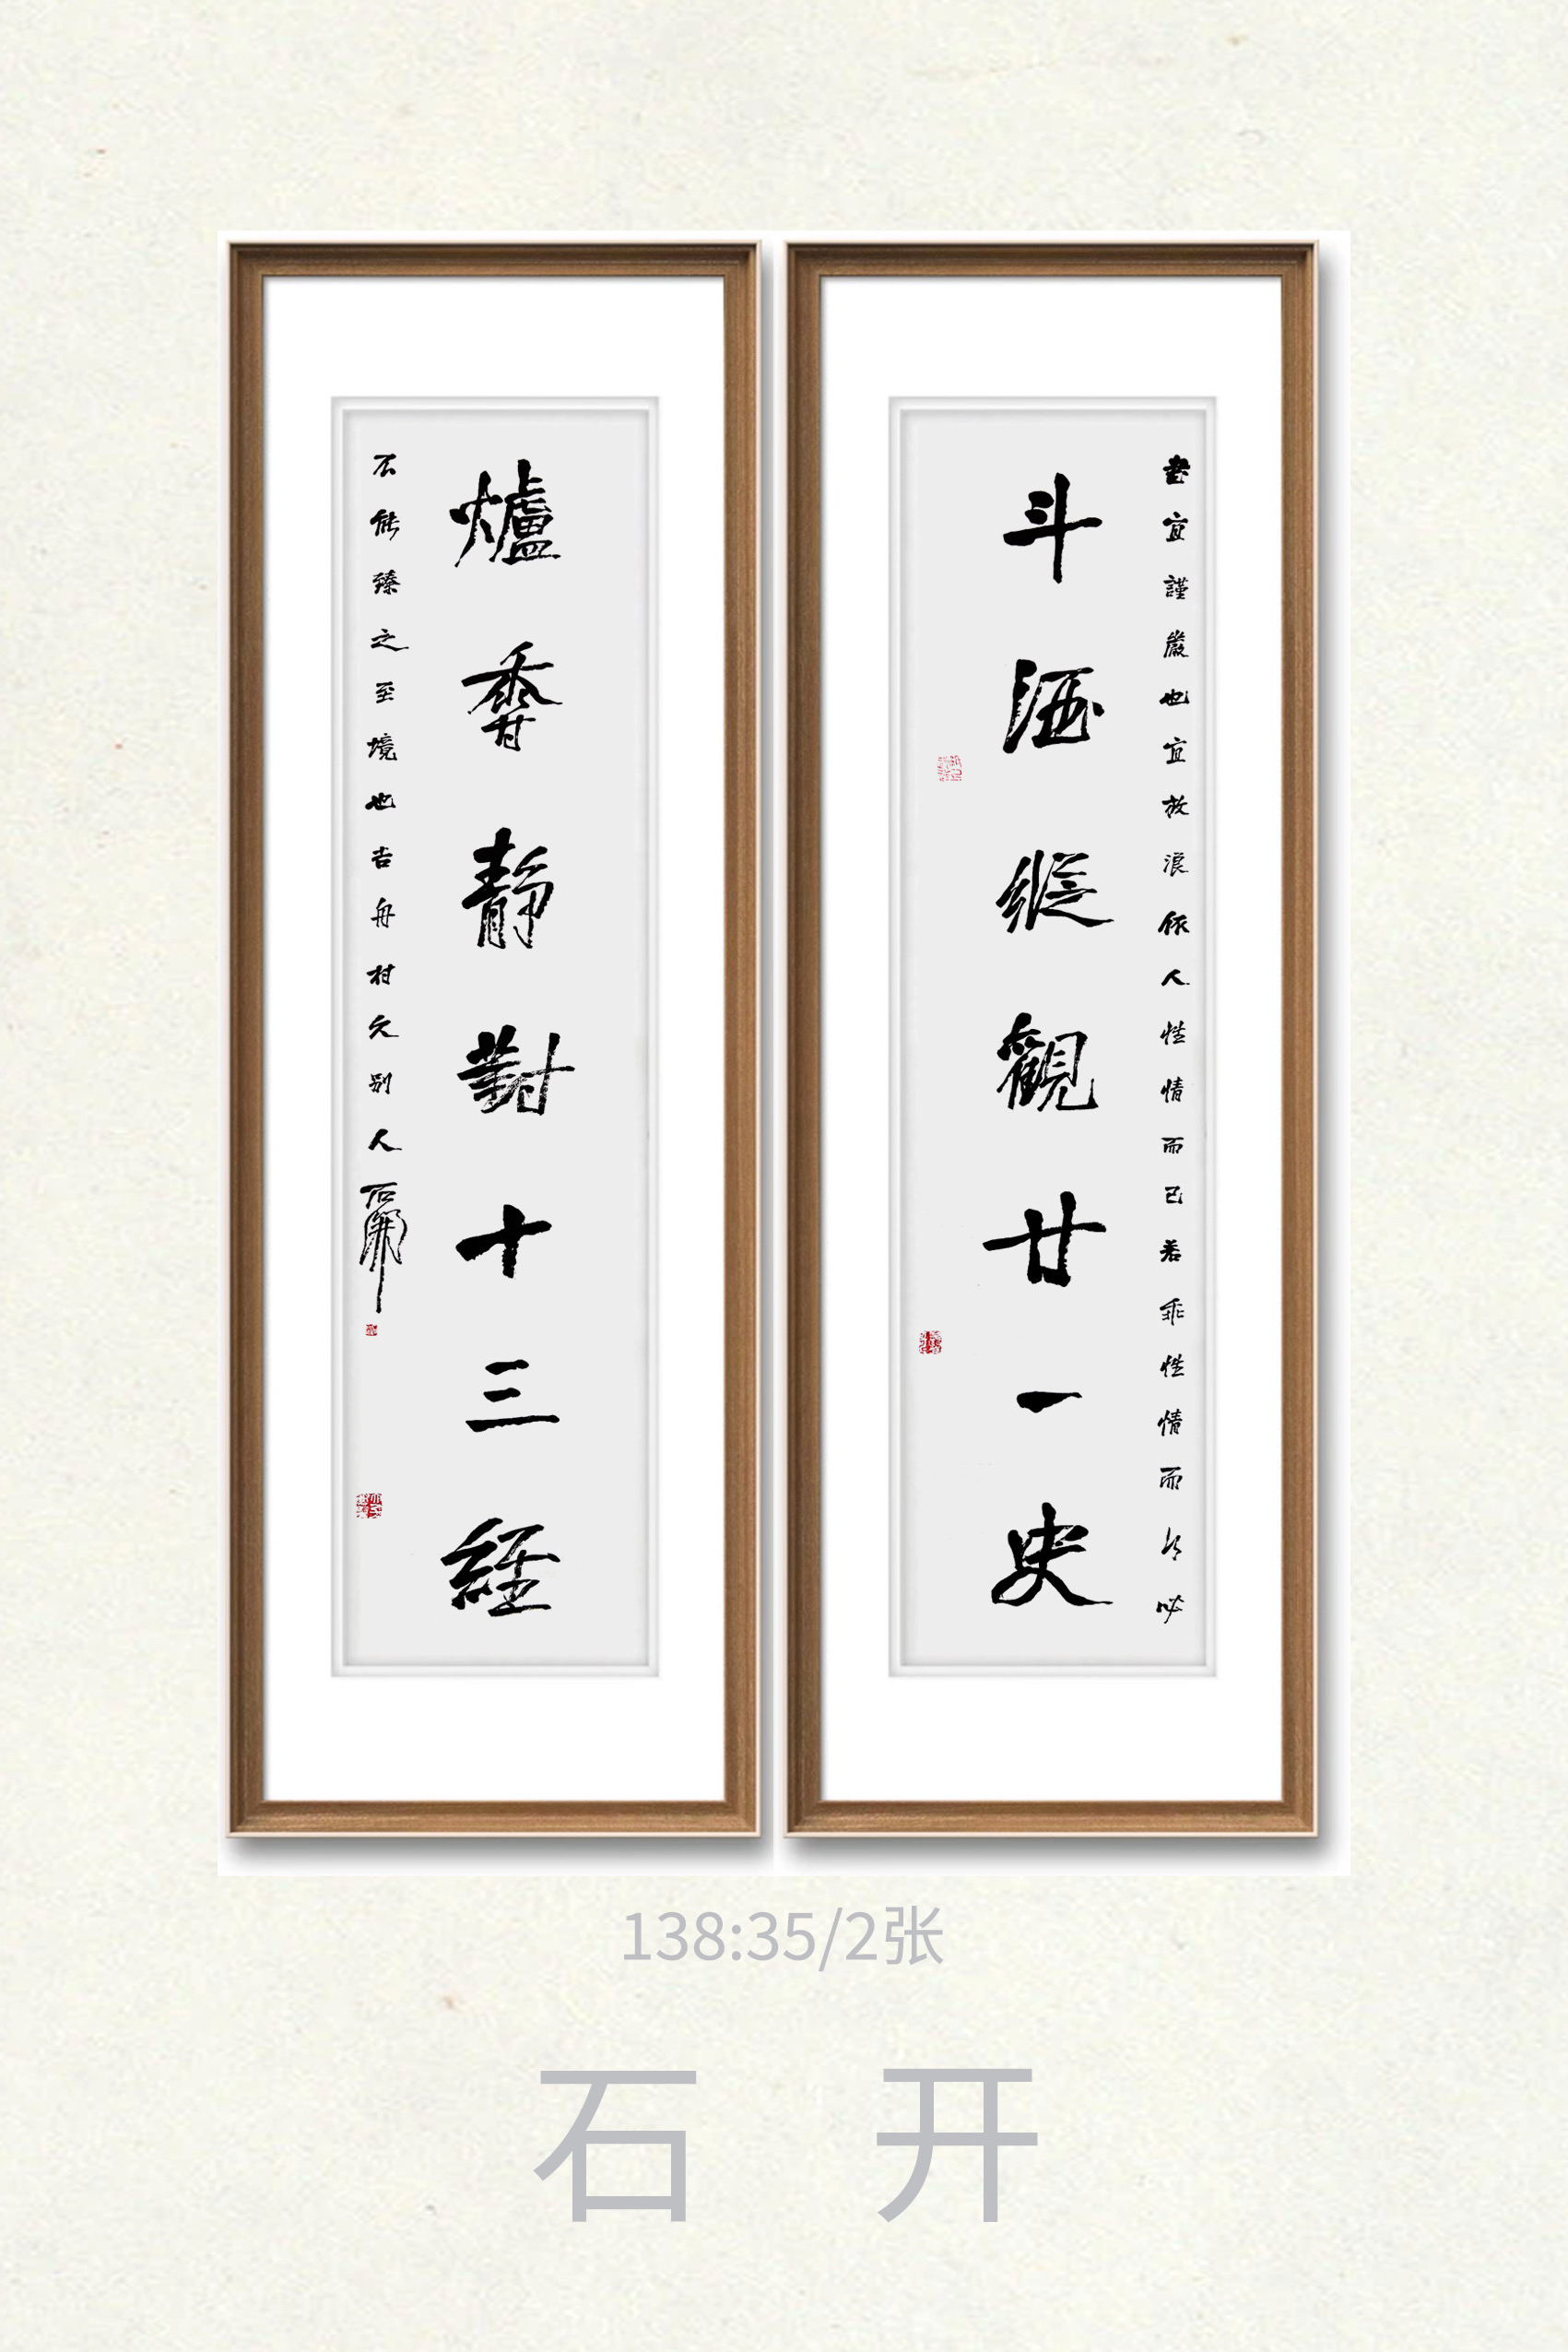 書宜謹嚴也宜放浪依人性情而已若乖性情而
斗酒縱觀廿一史
爐香靜對十三經
不能臻之至境也吉舟村久别人石開
138:35/2张
石 开